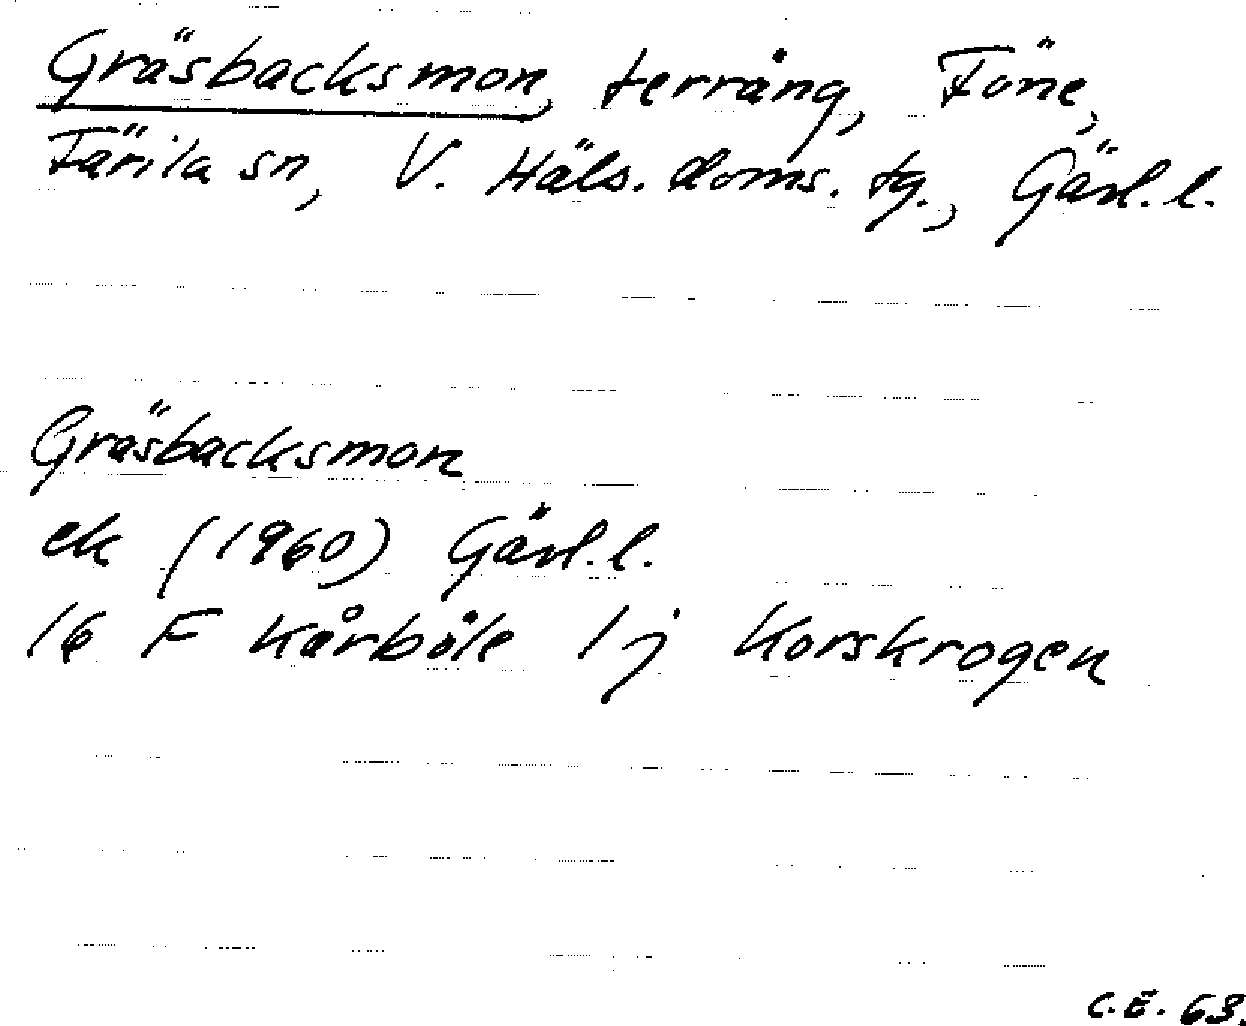 Gräsbacksmon, terräng, Föne,
Färila sn, V. Häls. doms. tg., Gävl. l.
Gräsbacksmon
ek (1960) Gävl. l.
16 F Kårböle 1 j Korskrogen
C.E. 63.